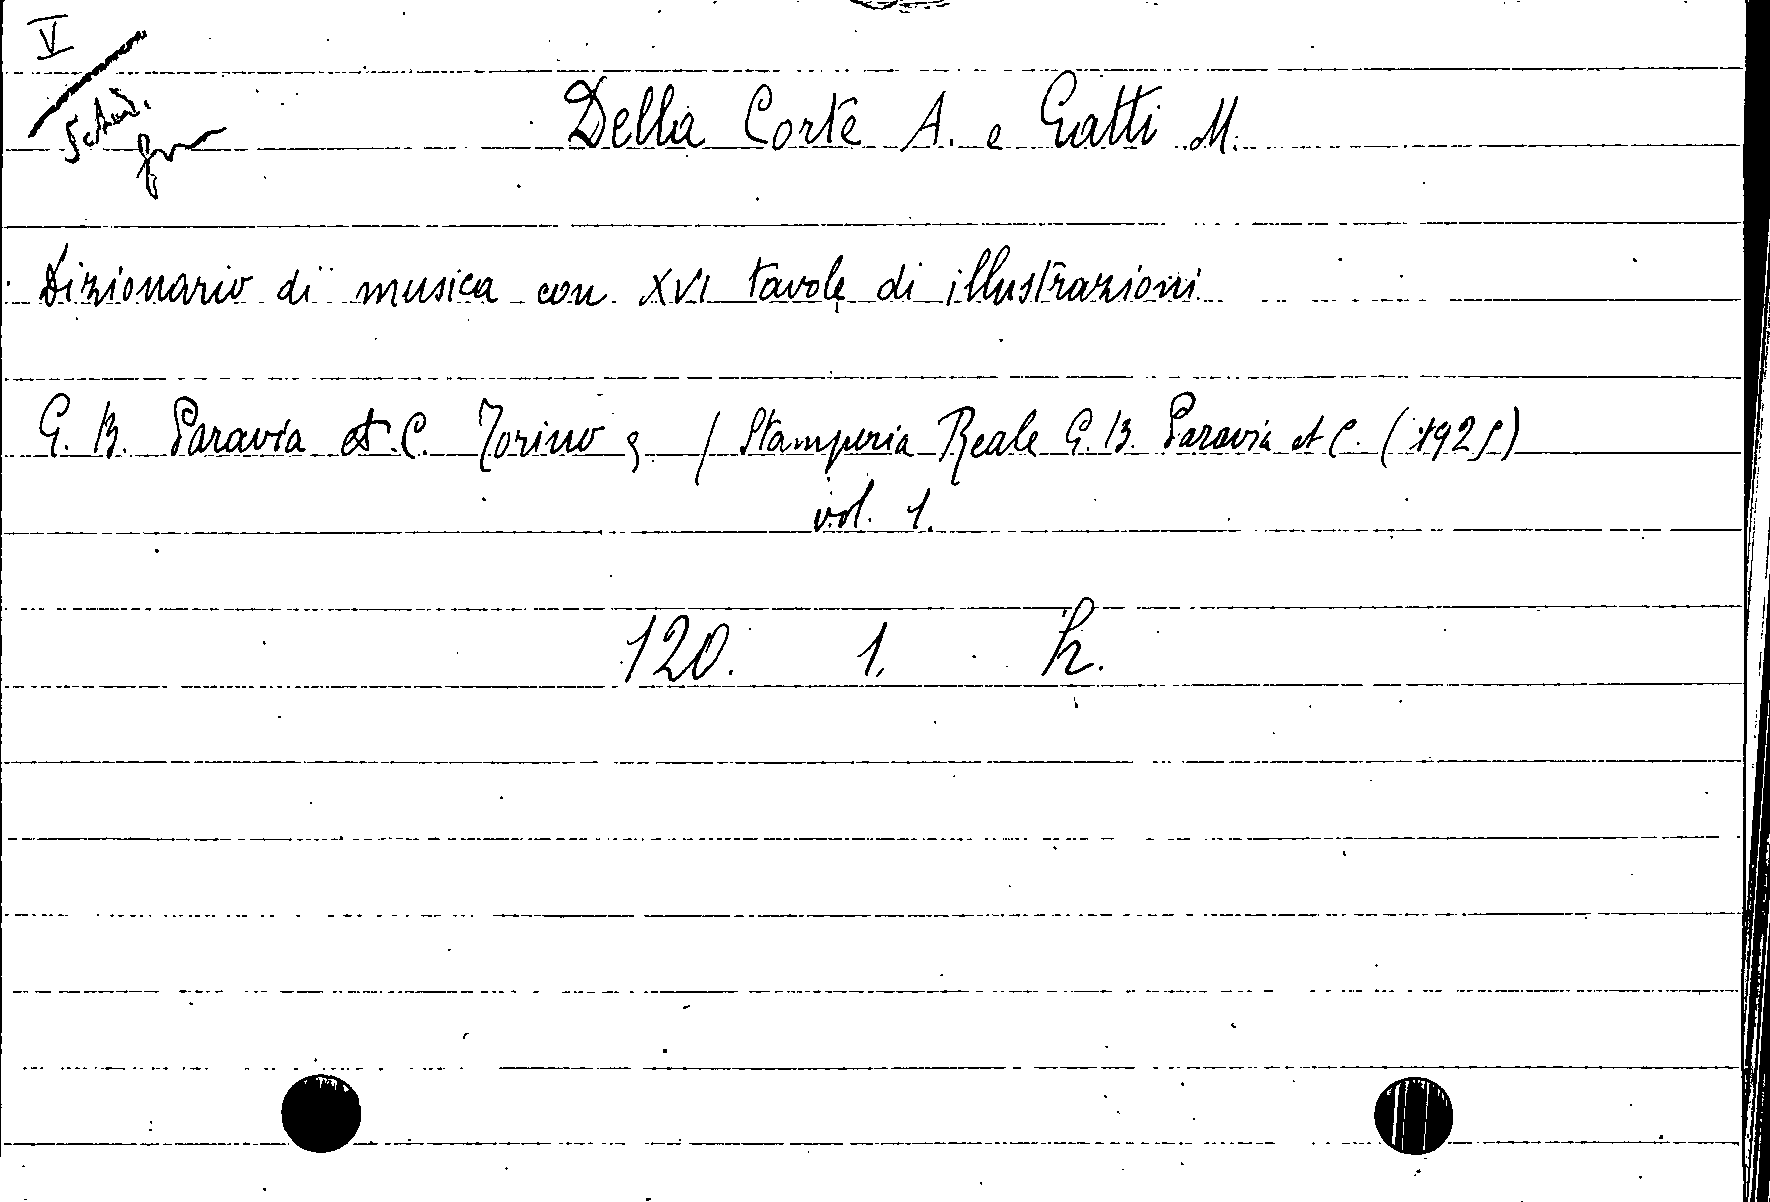 V
Sched.
Della Corte A. e Gatti M.
Dizionario di musica con XVI tavole di illustrazioni
G. B. Paravia et C. Torino / Stamperia Reale G. B. Paravia et C. (1925)
vol. 1.
120. 1. h.